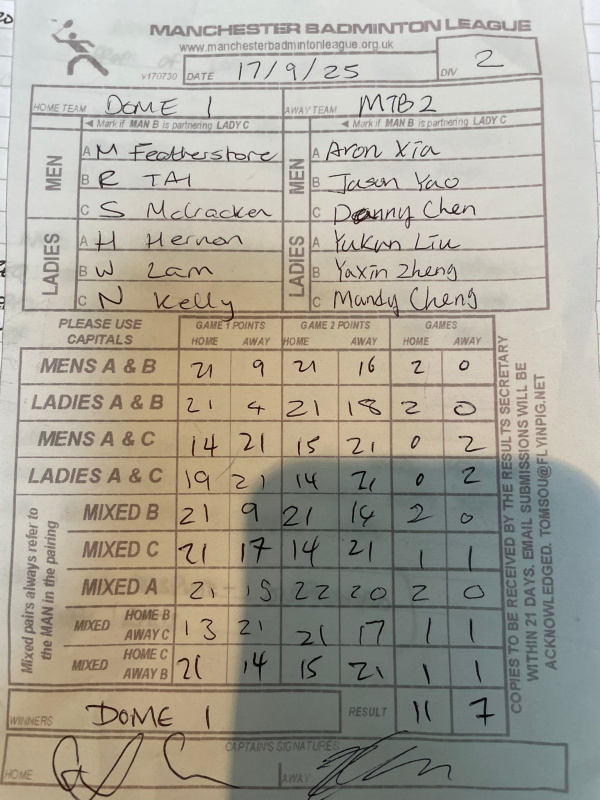 MANCHESTER BADMINTON LEAGUE
www.manchesterbadmintonleague.org.uk
v170730 DATE 17/9/25 DIV 2
HOME TEAM DOME 1 AWAY TEAM MTB2
◄ Mark if MAN B is partnering LADY C ◄ Mark if MAN B is partnering LADY C
MEN A M Featherstone MEN A Aron Xia
B R TAI B Jason Yao
C S McCracken C Danny Chen
LADIES A H Hernon LADIES A Yukun Liu
B W Lam B Yaxin Zheng
C N Kelly C Mandy Cheng
PLEASE USE CAPITALS GAME 1 POINTS GAME 2 POINTS GAMES
HOME AWAY HOME AWAY HOME AWAY
MENS A & B 21 9 21 16 2 0
LADIES A & B 21 4 21 18 2 0
MENS A & C 14 21 15 21 0 2
LADIES A & C 19 21 14 21 0 2
Mixed pairs always refer to the MAN in the pairing
MIXED B 21 9 21 14 2 0
MIXED C 21 17 14 21 1 1
MIXED A 21 22 20 2 0
MIXED HOME B AWAY C 13 21 21 17 1 1
MIXED HOME C AWAY B 21 14 15 21 1 1
WINNERS DOME 1 RESULT 11 7
CAPTAIN'S SIGNATURES
HOME AWAY
COPIES TO BE RECEIVED BY THE RESULTS SECRETARY
WITHIN 21 DAYS. EMAIL SUBMISSIONS WILL BE
ACKNOWLEDGED. TOMSOU@FLYINPIG.NET